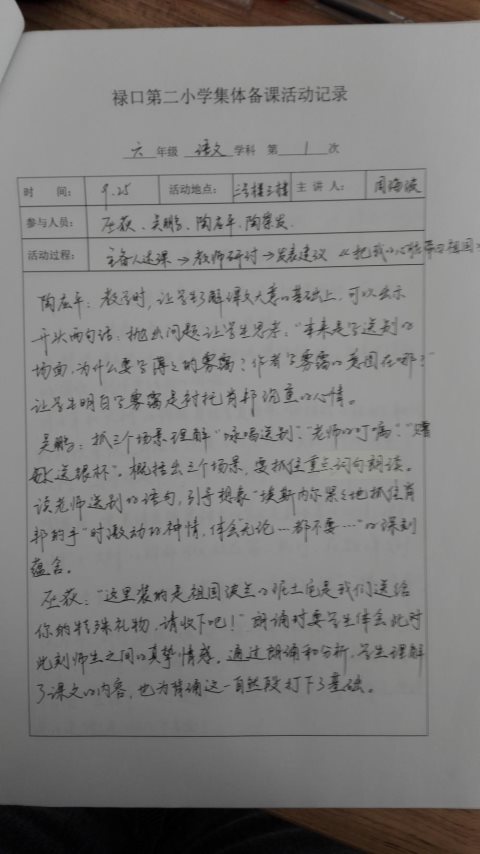 禄口第二小学集体备课活动记录
六 年级 语文 学科 第 1 次
时 间： 9.25 活动地点： 三楼 主 讲 人： 周海波
参与人员： 巫荻、吴鹏、陶庄平、陶荣发
活动过程： 主备人述课→教师研讨→发表建议 《把我的心脏带回祖国》
陶庄平：教学时，让学生了解课文大意的基础上，可以出示
开头两句话，抛出问题让学生思考，“本来是写送别的
场面，为什么要写薄薄的雾霭？作者写雾霭的意图在哪？”
让学生明白写雾霭是衬托肖邦沉重的心情。
吴鹏：抓三个场景理解“咏唱送别”、“老师的叮嘱”、“赠
送银杯”。概括出三个场景，要抓住重点词句朗读。
读老师送别的语句，引导想象“埃斯内尔紧紧地抓住肖
邦的手”时激动的神情，体会“无论…都不要…”的深刻
蕴含。
巫荻：“这里装的是祖国波兰的泥土，它是我们送给
你的特殊礼物，请收下吧！”朗诵时要学生体会此时
此刻师生之间的真挚情感。通过朗诵和分析，学生理解
了课文的内容，也为背诵这一自然段打下了基础。